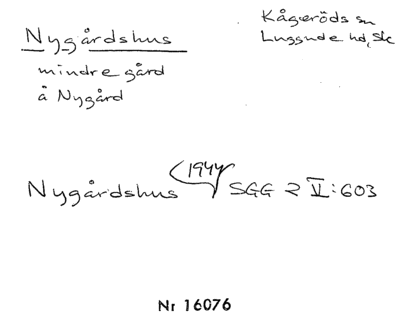 Nygårdshus
Kågeröds sn
Luggude hd, Sk
mindre gård
å Nygård
1944
Nygårdshus SGG 2 V:603
Nr 16076